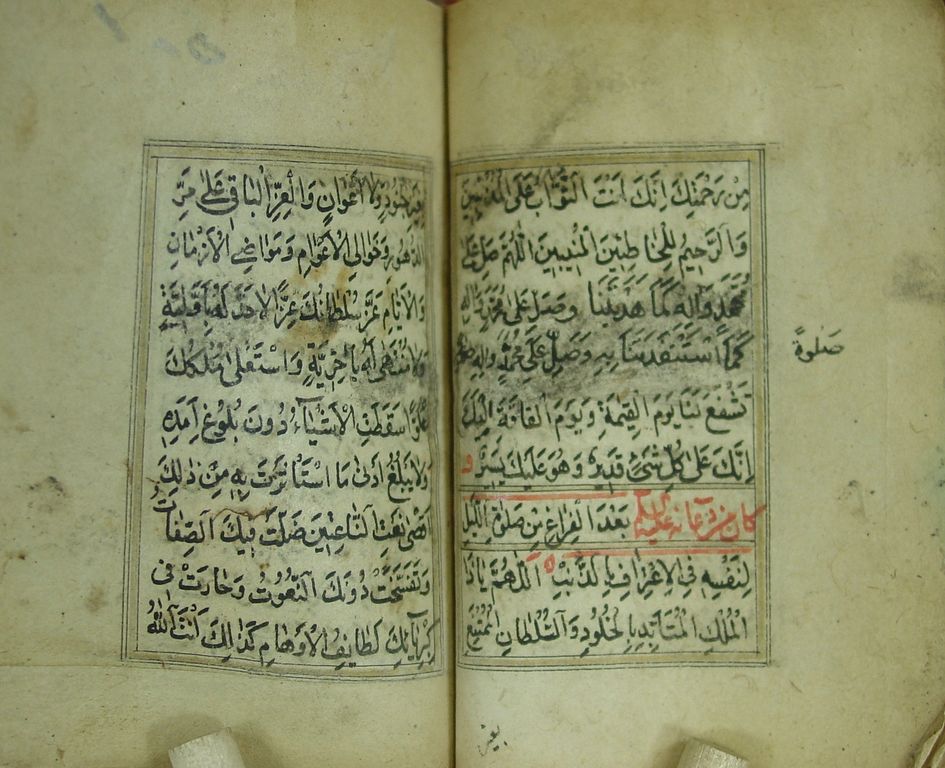 مِنْ رَحْمَتِكَ اِنَّكَ اَنْتَ التَّوَّابُ عَلَى الْمُذْنِبِينَ
وَالرَّحِيمُ لِلْخَاطِئِينَ الْمُنِيبِينَ اَللّٰهُمَّ صَلِّ عَلٰى
مُحَمَّدٍ وَاٰلِهِ كَمَا هَدَيْتَنَا بِهِ وَصَلِّ عَلٰى مُحَمَّدٍ وَاٰلِهِ
كَمَا اسْتَنْقَذْتَنَا بِهِ وَصَلِّ عَلٰى مُحَمَّدٍ وَاٰلِهِ صلوة
تَشْفَعُ لَنَا يَوْمَ الْقِيٰمَةِ وَيَوْمَ الْفَاقَةِ اِلَيْكَ
اِنَّكَ عَلٰى كُلِّ شَيْءٍ قَدِيرٌ وَهُوَ عَلَيْكَ يَسِيرٌ و
كان من دعائه عليه السلام بَعْدَ الْفَرَاغِ مِنْ صَلٰوةِ اللَّيْلِ
لِنَفْسِهِ فِي الْاِعْتِرَافِ بِالذَّنْبِ اَللّٰهُمَّ يَاذَا
الْمُلْكِ الْمُتَاَبِّدِ بِالْخُلُودِ وَالسُّلْطَانِ الْمُمْتَنِعِ
صلوةً
بغير
بِغَيْرِ جُنُودٍ وَلَا اَعْوَانٍ وَالْعِزِّ الْبَاقِي عَلٰى مَرِّ
الدُّهُورِ وَخَوَالِي الْاَعْوَامِ وَمَوَاضِي الْاَزْمَانِ
وَالْاَيَّامِ عَزَّ سُلْطَانُكَ عِزًّا لَا حَدَّ لَهُ بِاَوَّلِيَّةٍ
وَلَا مُنْتَهٰى لَهُ بِاٰخِرِيَّةٍ وَاسْتَعْلٰى مُلْكُكَ
عُلُوًّا سَقَطَتِ الْاَشْيَاءُ دُونَ بُلُوغِ اَمَدِهِ
وَلَا يَبْلُغُ اَدْنٰى مَا اسْتَاْثَرْتَ بِهِ مِنْ ذٰلِكَ
اَقْصٰى نَعْتِ النَّاعِتِينَ ضَلَّتْ فِيكَ الصِّفَاتُ
وَتَفَسَّخَتْ دُونَكَ النُّعُوتُ وَحَارَتْ فِي
كِبْرِيَائِكَ لَطَائِفُ الْاَوْهَامِ كَذٰلِكَ اَنْتَ اللهُ